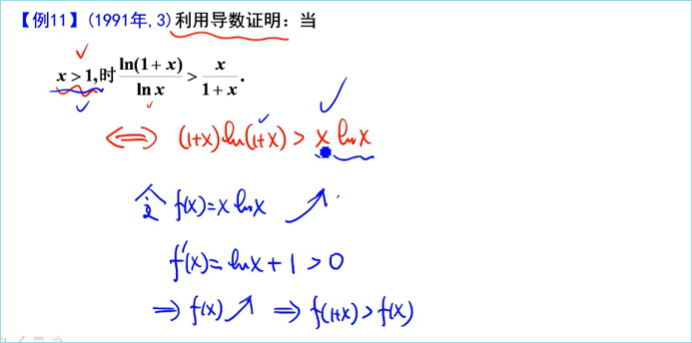 【例11】(1991年,3)利用导数证明：当
x > 1,时 ln(1 + x) / ln x > x / (1 + x).
⟺ (1+x)ln(1+x) > x ln x
令 f(x)=x ln x ↗
f'(x)= ln x + 1 > 0
⇒ f(x) ↗ ⇒ f(1+x) > f(x)